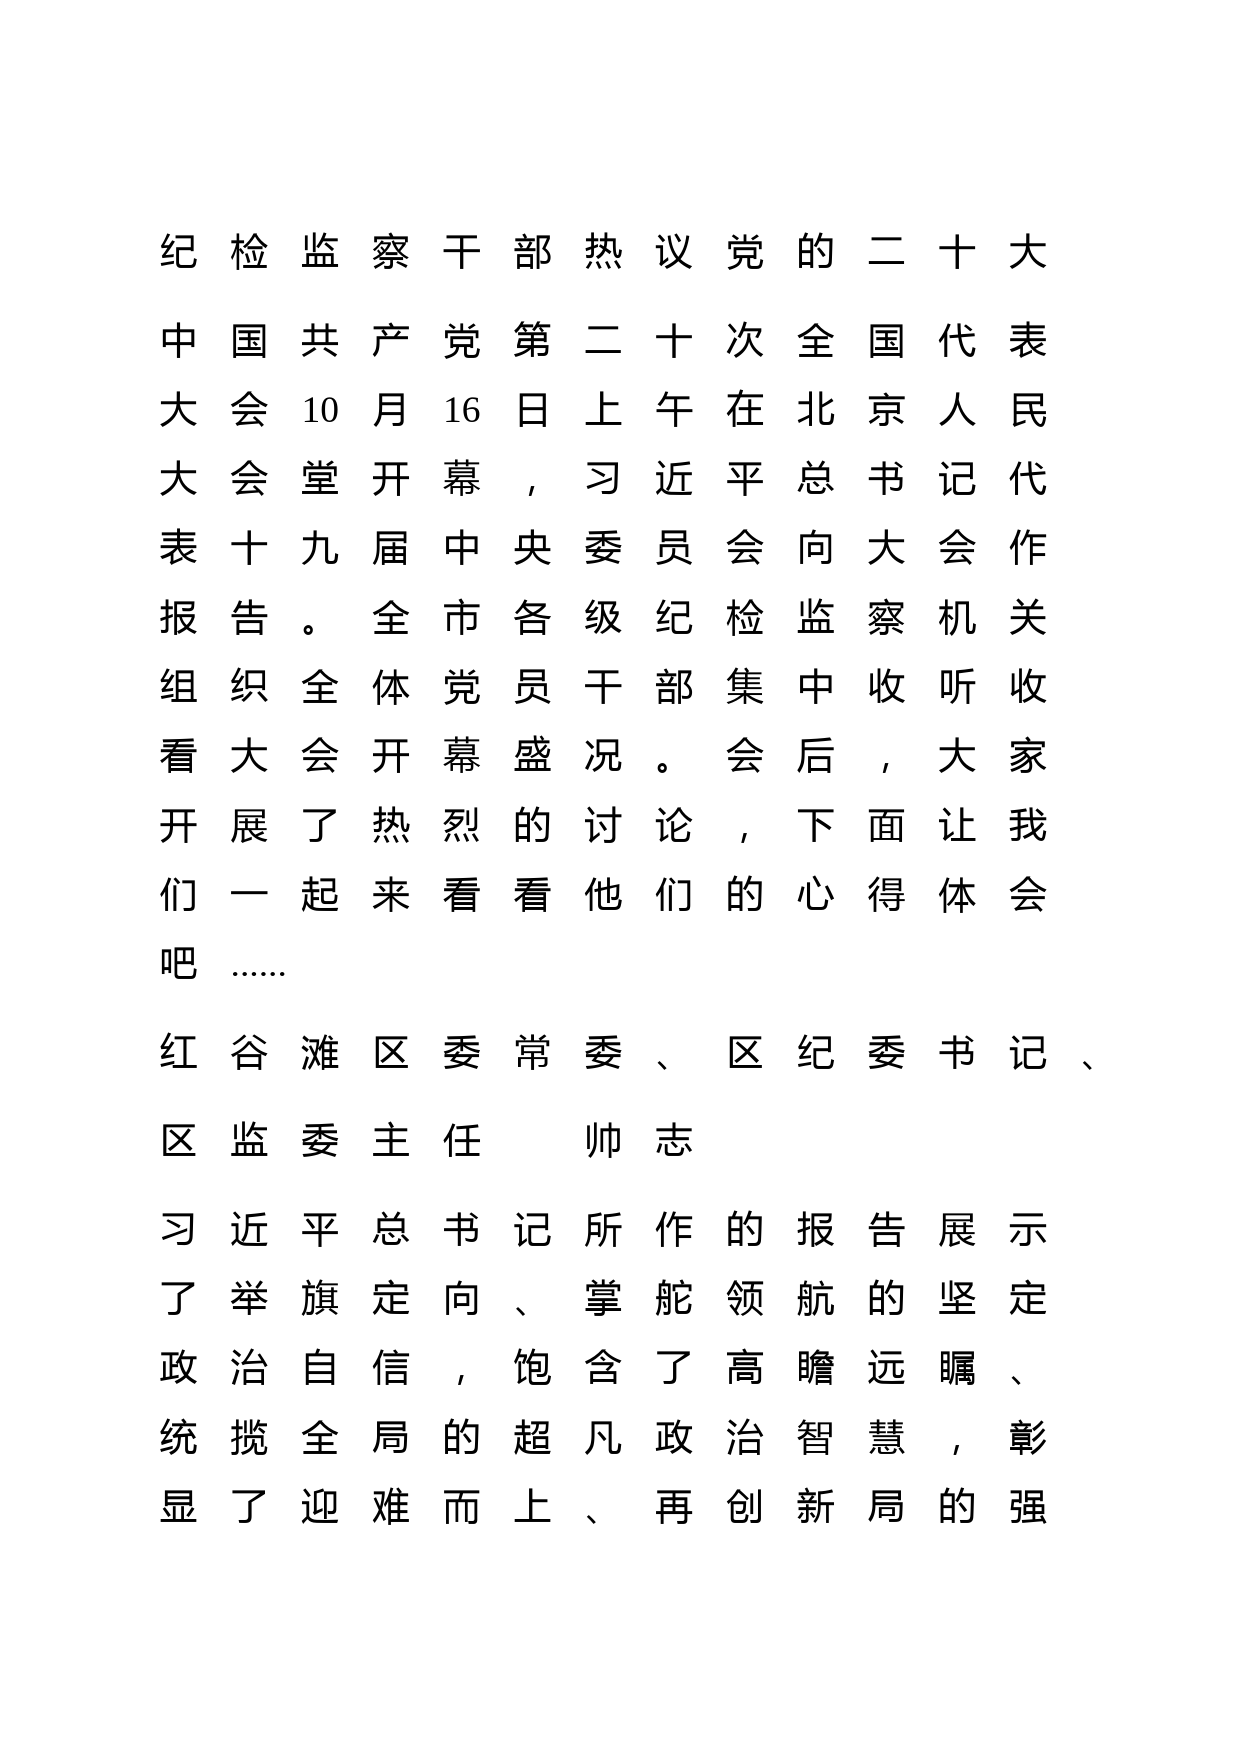 纪检监察干部热议党的二十大
中国共产党第二十次全国代表
大会10月16日上午在北京人民
大会堂开幕，习近平总书记代
表十九届中央委员会向大会作
报告。全市各级纪检监察机关
组织全体党员干部集中收听收
看大会开幕盛况。会后，大家
开展了热烈的讨论，下面让我
们一起来看看他们的心得体会
吧......
红谷滩区委常委、区纪委书记、
区监委主任 帅志
习近平总书记所作的报告展示
了举旗定向、掌舵领航的坚定
政治自信，饱含了高瞻远瞩、
统揽全局的超凡政治智慧，彰
显了迎难而上、再创新局的强